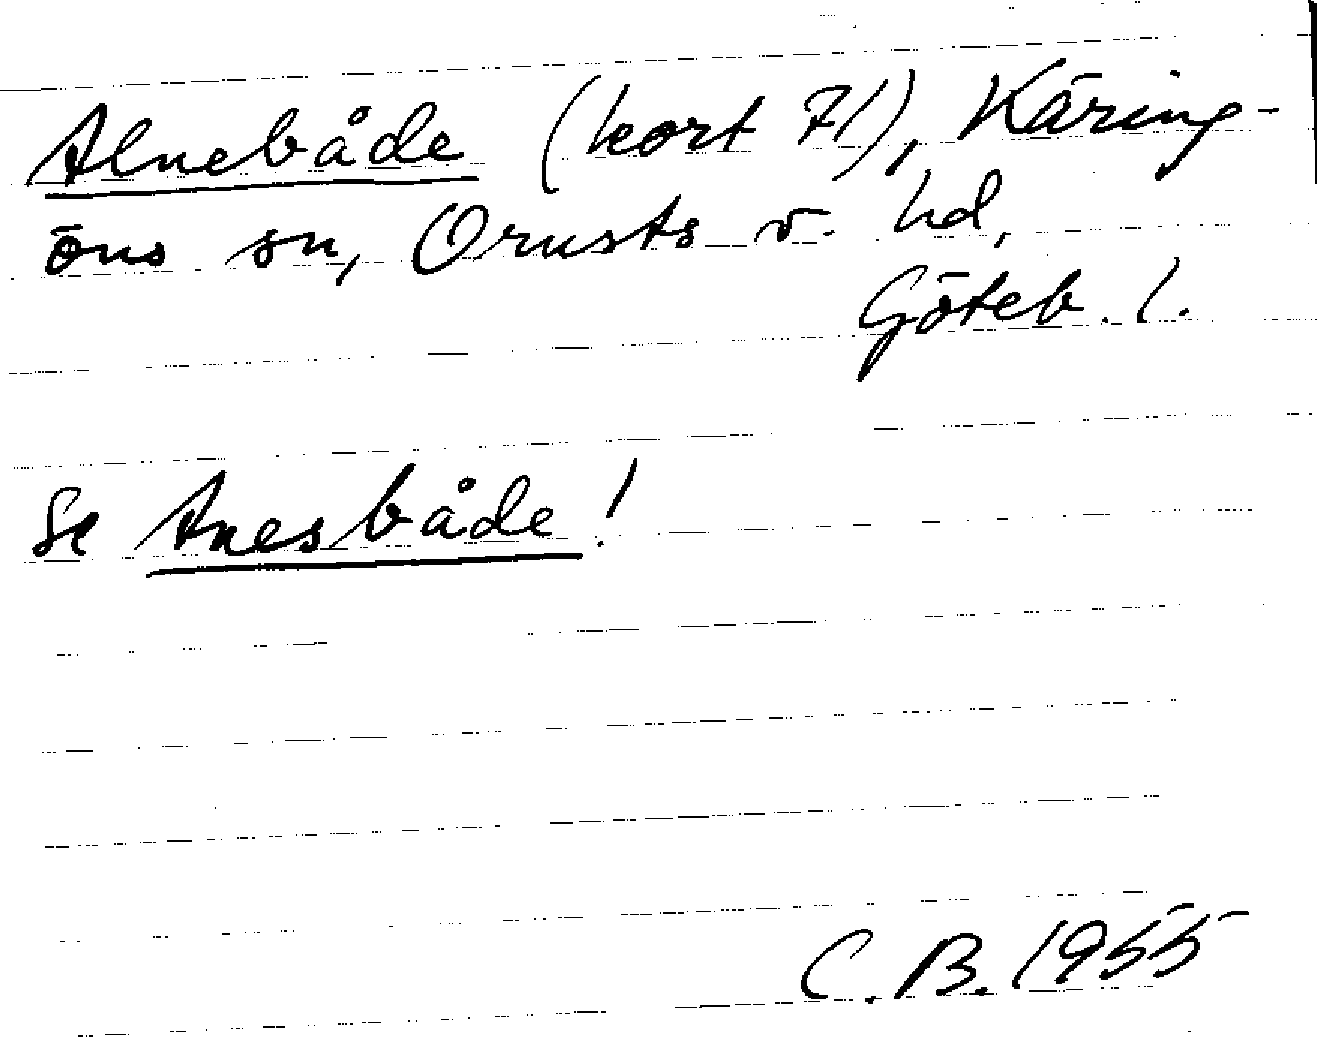 Alnebåde (kort 71), Käring-
öns sn, Orusts v. hd,
Göteb. l.
Se Anesbåde!
C. B. 1955